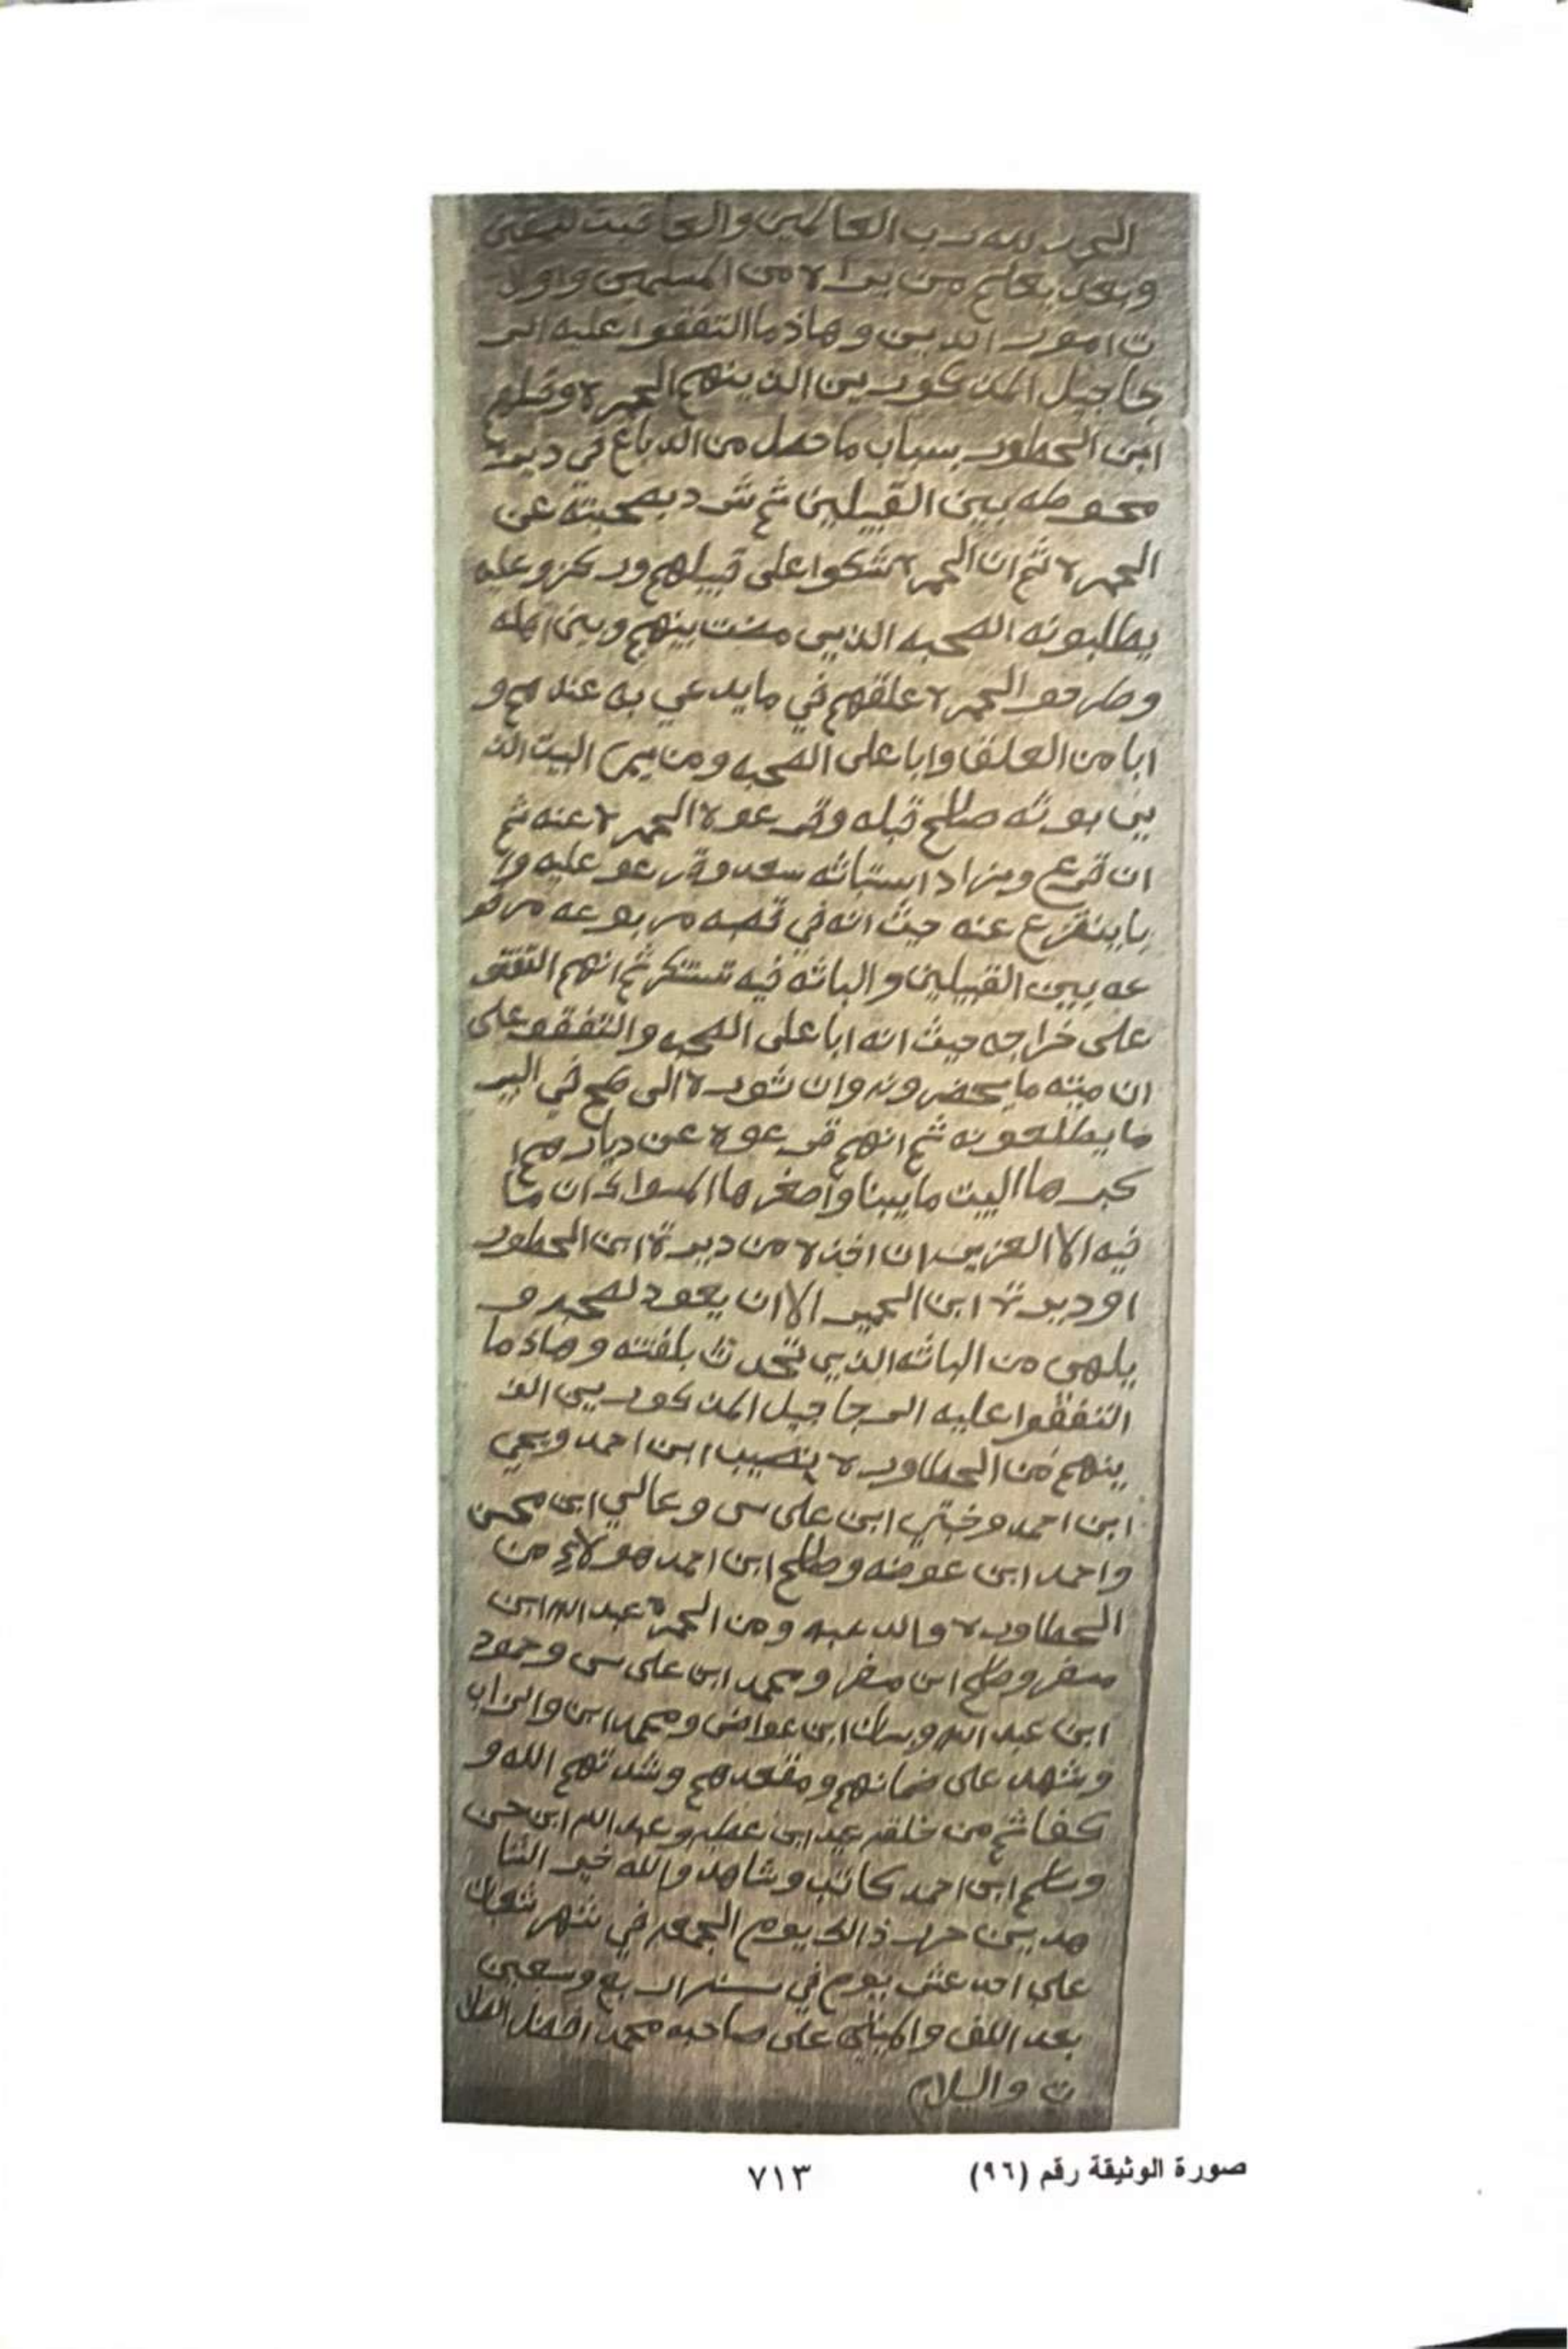 الحمد لله رب العالمين والعاقبت للمتقين
وبعد يعلم من يراه من المسلمين واولا
ت امور الدين وهاذ ما التفقوا عليه الر
جاجيل المذكورين الذينهم الحمره و
ابن الحطور بسباب ما حصل من الدباغ في ديرت
محوطه بين القبيلين ثم شرد بصحبته عن
الحمره ثم ان الحمره شكوا على قبيلهم وركزو عليه
يطلبونه الصحبه الذي مضت بينهم وبين اهله
وطرحو الحمره علقهم في ما يدعي به عندهم و
ابا من العلق وابا على الصحبه ومن يمين البيت الذ
بوثه صالح قبله وقرعوه الحمره عنه ثم
ان قرع وبنزاد استباثه سعد وقرعو عليه وا
با ينقرع عنه حيث انه في قصه مربوعه مرفو
عه بين القبيلين والباثه فيه تستنكر ثم انهم التفقو
على خراجه حيث انه ابا على الصحبه والتفقو على
ان ميته ما يحضرونه وان ثوره الى طح في البير
ما يطلعونه ثم انهم قرعوه عن ديارهم ا
كبرها البيت ما يبنا واصغرها المسواك ان ما
فيه الا العزير ان اخذه من ديرة ابن الحطور
او ديرة ابن الحمير الا ان يعود لصحبه و
يلهى من الباثه الذي تحدث بلفته وهاذ ما
التفقوا عليه الرجاجيل المذكورين الذ
ينهم من الحطاوره نصيب ابن احمد ويحي
ابن احمد وختي ابن على سى وعالي ابن محسن
واحمد ابن عوضه وصالح ابن احمد هولاء من
الحطاوره والدعبه ومن الحمرة عبدالله ابن
مسفر وصالح ابن مسفر ومحمد ابن على سى وحمود
ابن عبد الله و ابن عواض ومحمد ابن
وشهد على ضمانهم ومقعدهم وشدتهم الله و
كفا ثم من خلقه ابن عطيه وعبد الله ابن حسن
وسالم ابن احمد كاتب وشاهد والله خير الشا
هدين حرر ذالك يوم الجمعه في شهر شعبان
على احد عشر يوم في سنه اربع وسبعين
بعد اللف والميتين على صاحبه محمد افضل الصلا
ت والسلام
صورة الوثيقة رقم (٩٦)
٧١٣